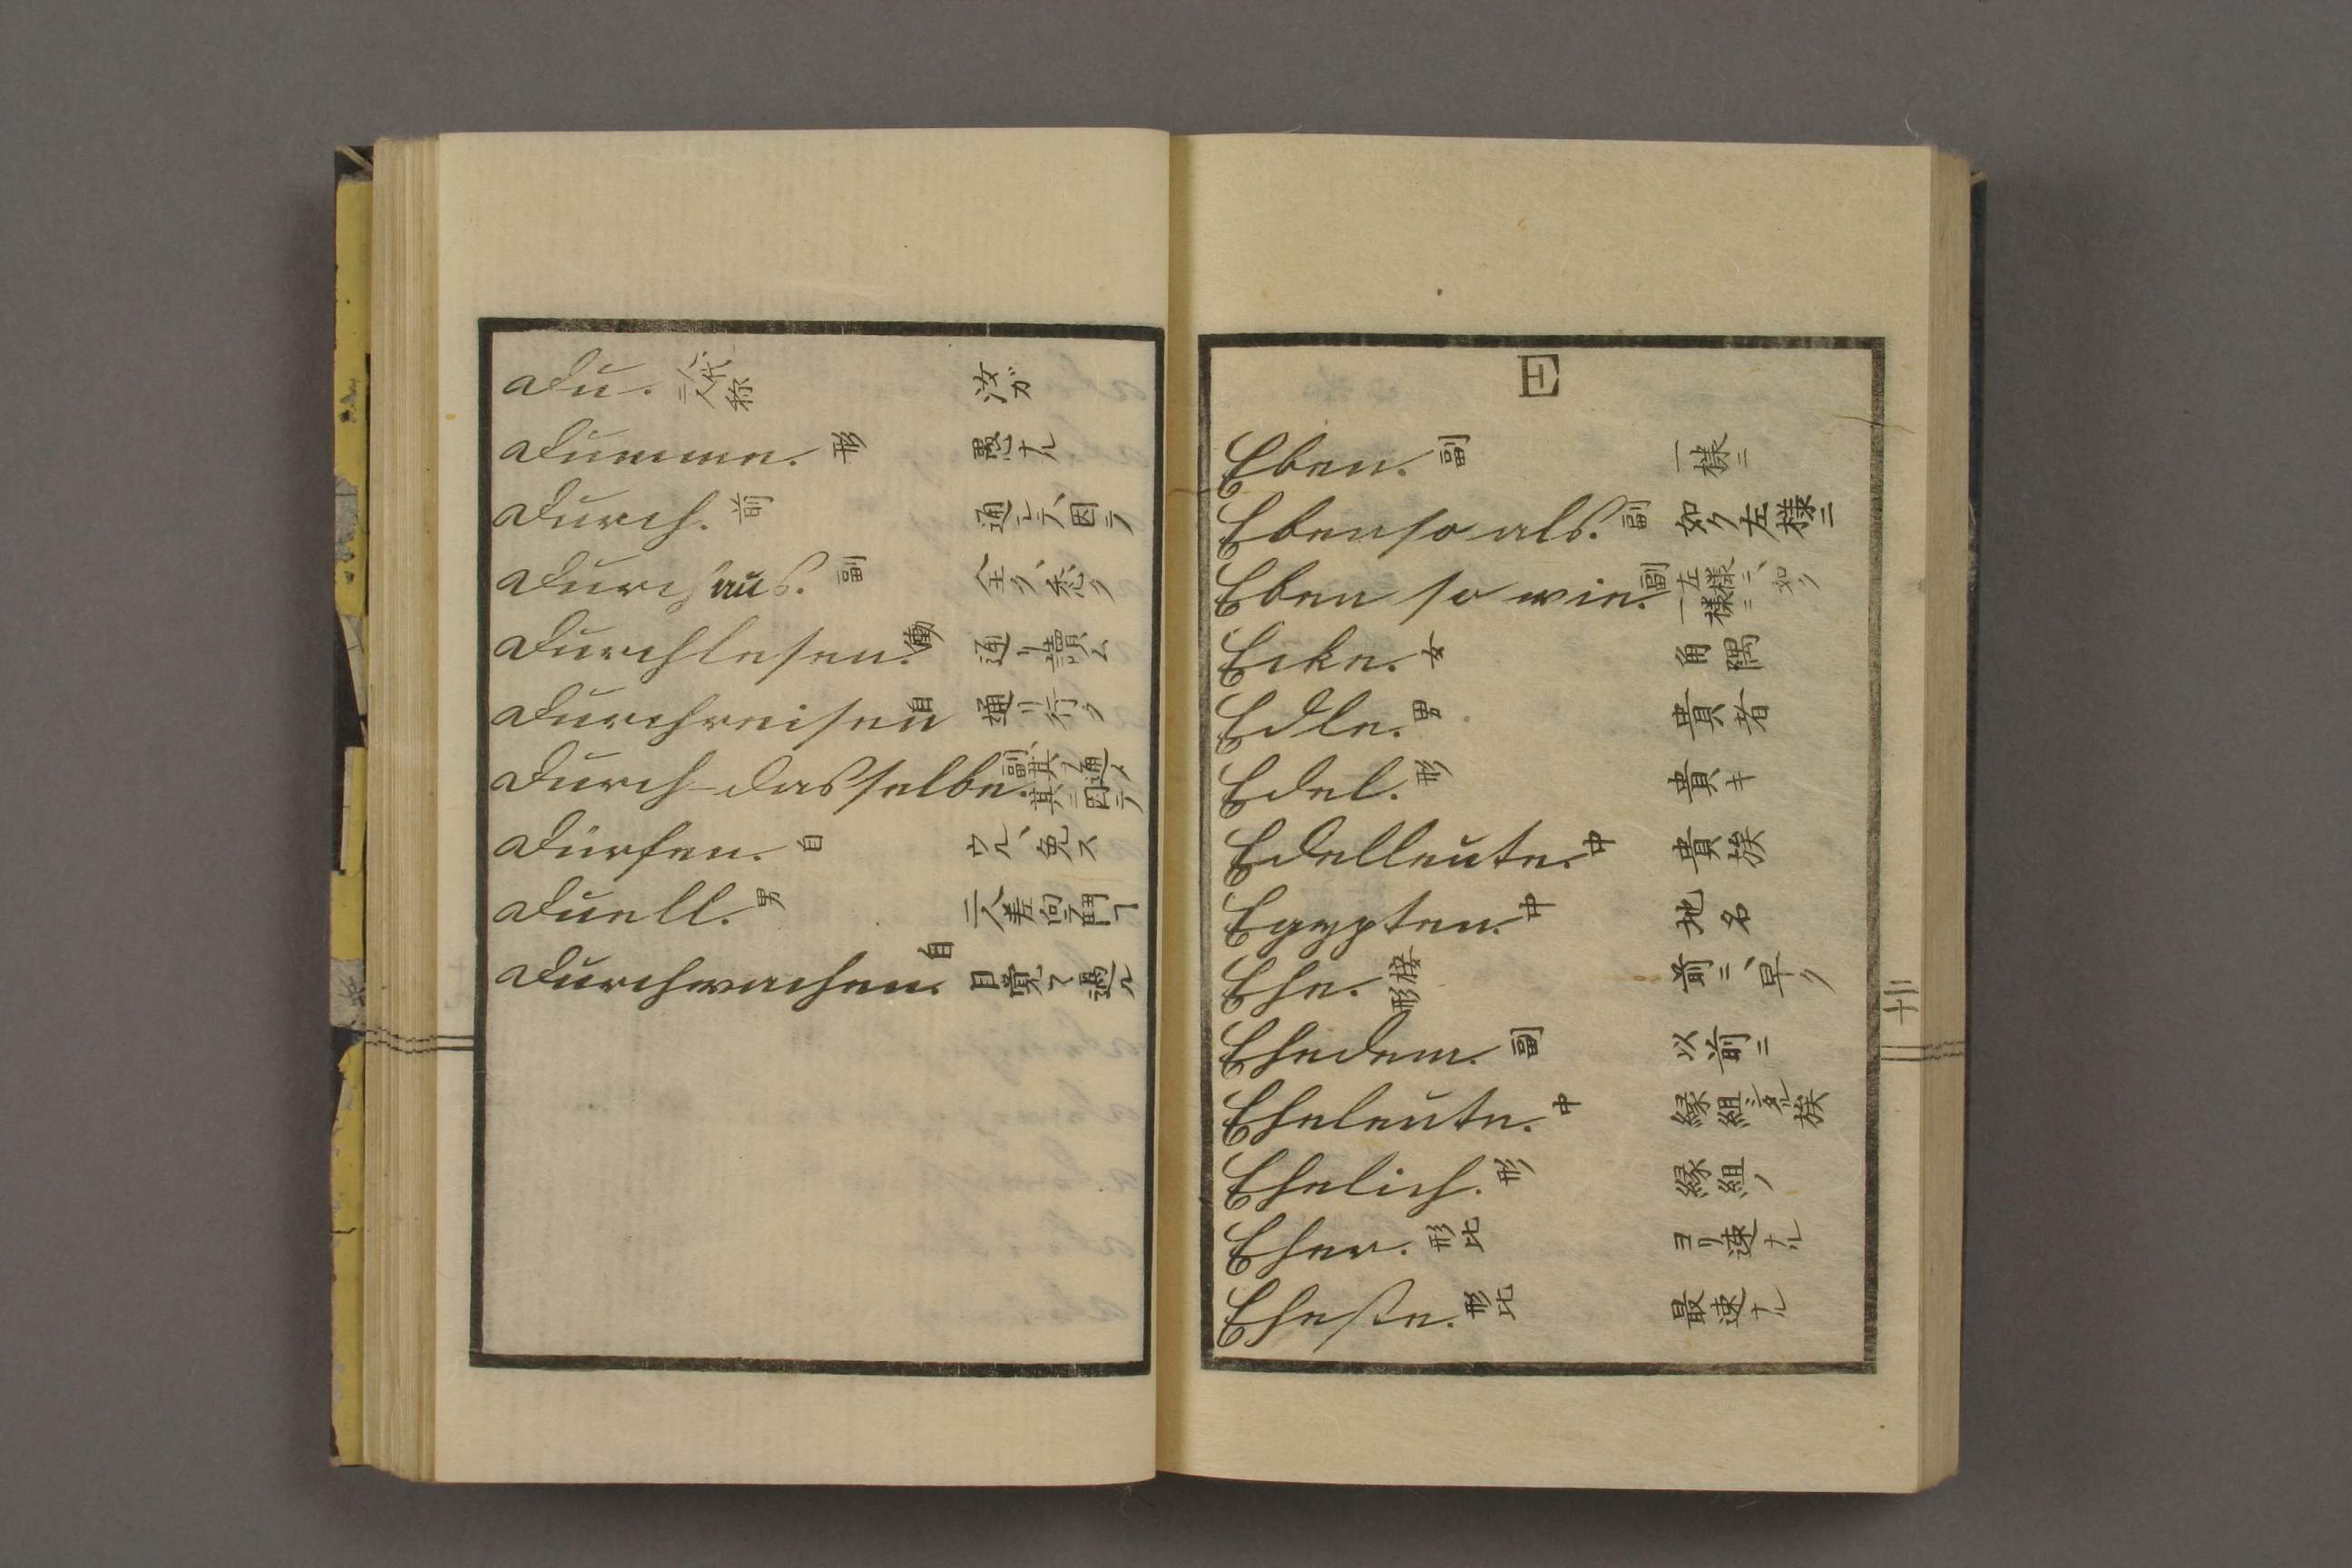 Du. 二人代称 汝ガ
Dumme. 形 愚ナル
Durch. 前 通シテ、因テ
Durchaus. 副 全ク、悉ク
Durchlesen. 働 通リ讀ム
Durchreisen 自 通リ行ク
Durch-dasselbe. 副 其ヲ通シテ、其ニ因テ
Dürfen. 自 免ス
Duell. 男 二人差向フ闘
Durchwachen. 自 目覚テ過ル
E
Eben. 副 一樣ニ
Eben so als. 副 如ク左樣ニ
Eben so wie. 副 左樣ニ、如ク一樣ニ
Ecke. 女 角隅
Edle. 男 貴者
Edel. 形 貴キ
Edelleute. 中 貴族
Egypten. 中 地名
Ehe. 接形 前ニ、早ク
Ehedem. 副 以前ニ
Eheleute. 中 縁組 族
Ehelich. 形 縁組ノ
Eher. 形比 ヨリ速ナル
Eheste. 形比 最速ナル
十三